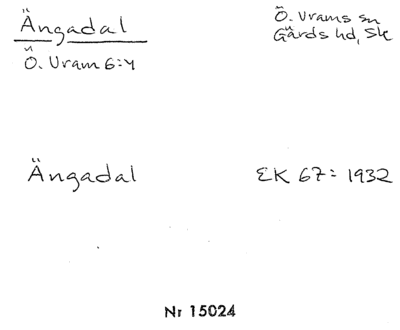 Ängadal
Ö. Vrams sn
Gärds hd, Sk
Ö. Vram 6:4
Ängadal
EK 67: 1932
Nr 15024